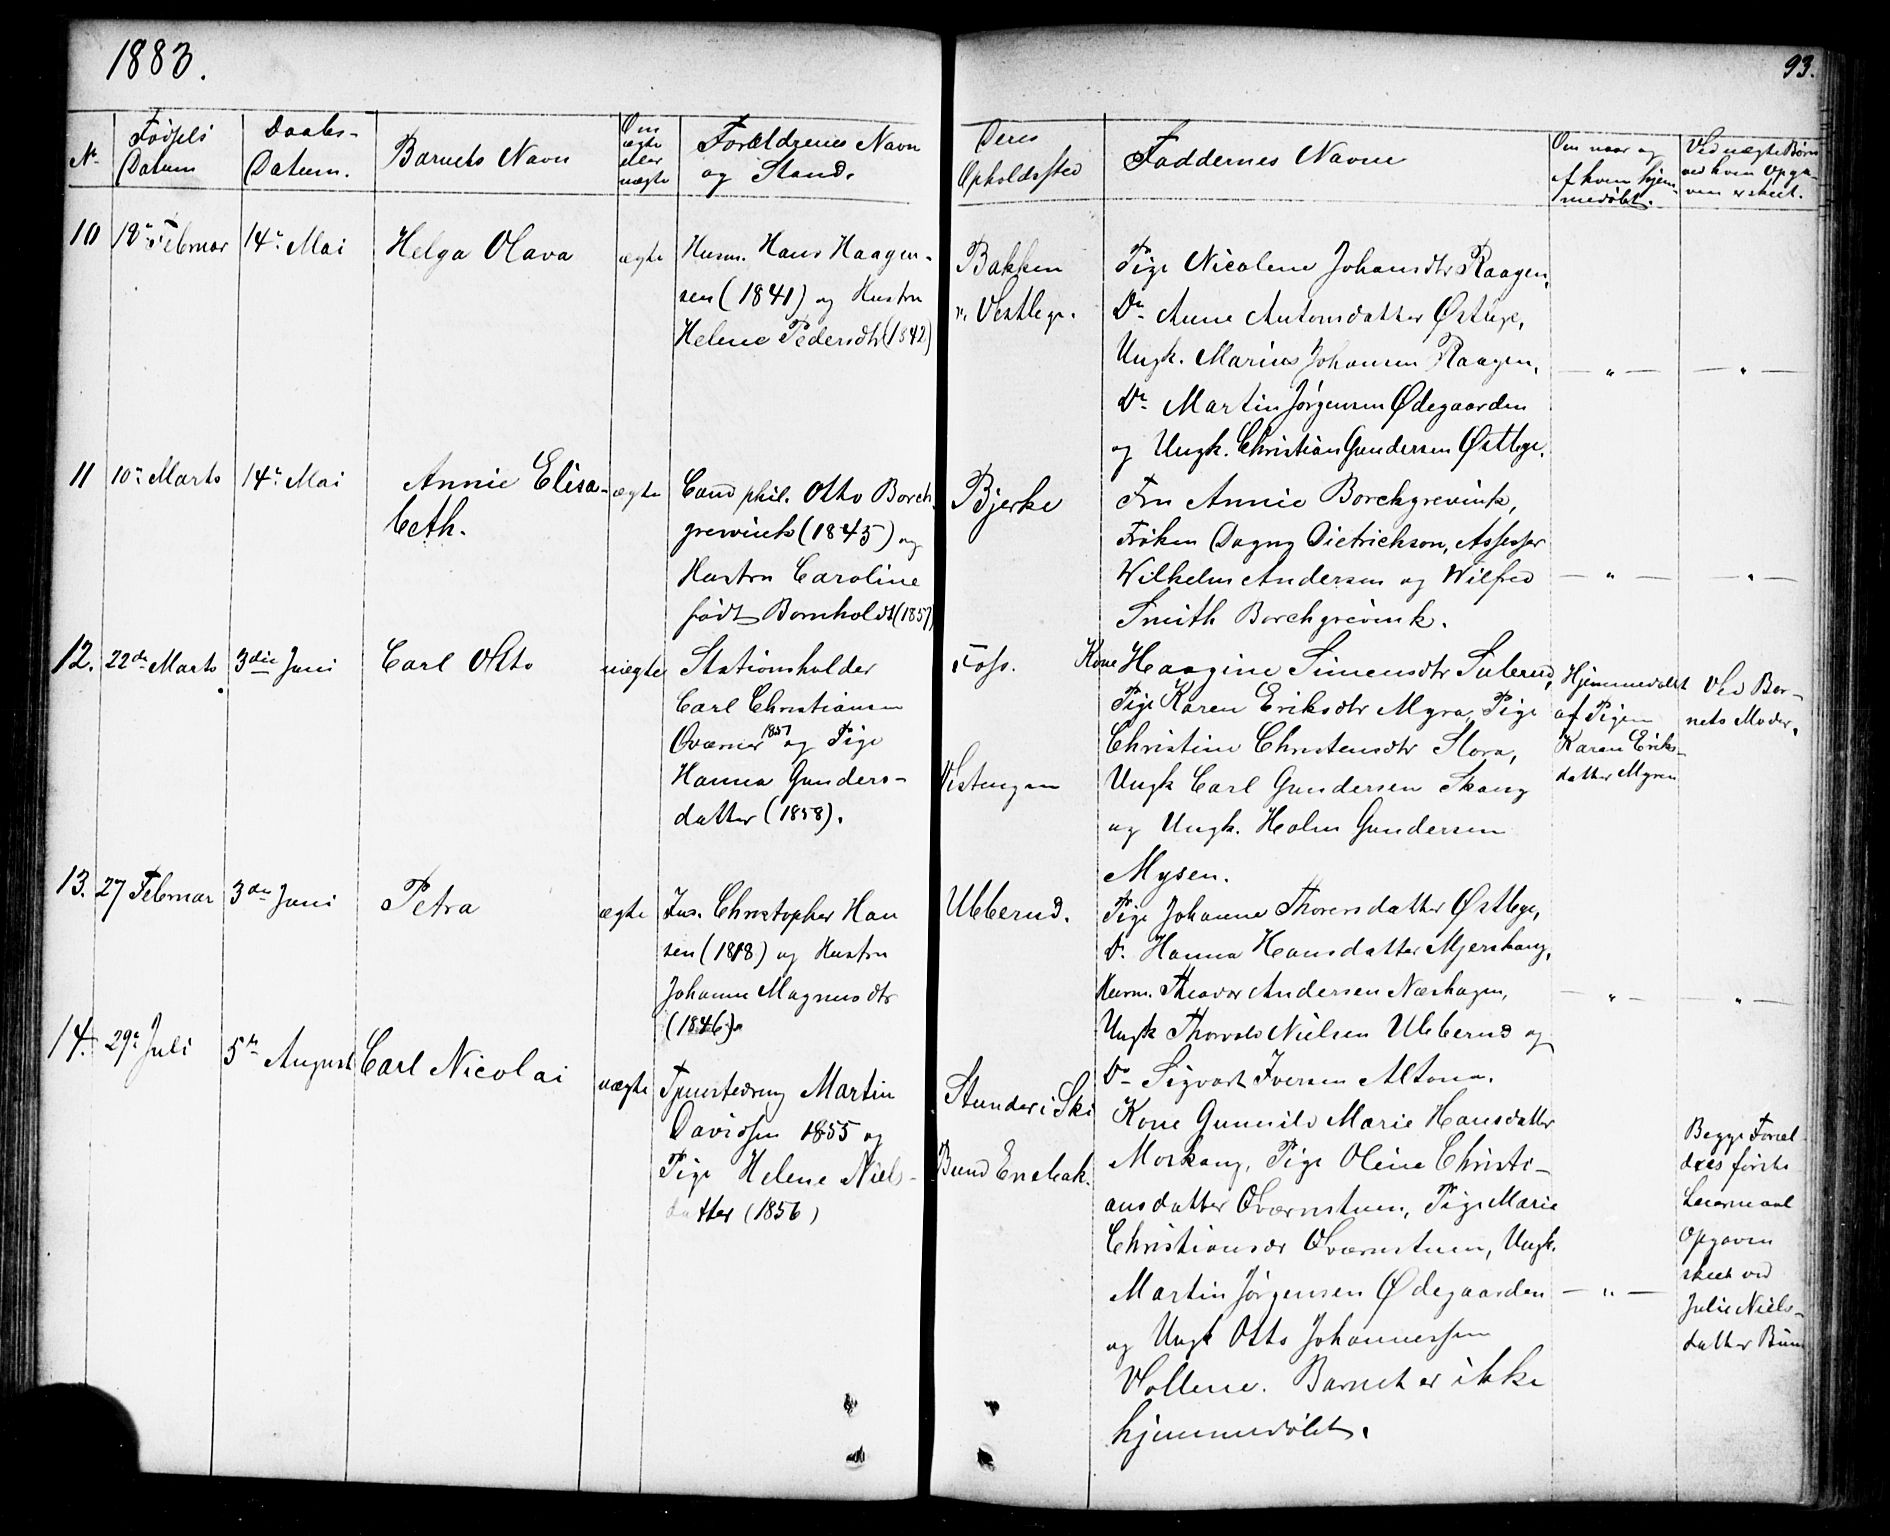 1883.
93.
No
Fødsels Datum
Daabs-Datum.
Barnets Navn
Om ægte eller uægte
Forældrenes Navn og Stand.
Deres Opholdssted
Faddernes Navne
Om naar og af hvem hjemmedøbt.
Ved uægte Børn ved hvem Opgaven er skeet.
10
18de Februar
14de Mai
Helga Olava
ægte
Husm. Hans Haagen-
sen (1841) og Hustru
Helene Pedersdtr (1842)
Bakken
u. Østlege.
Pige Nicoline Johansdtr Raagen,
Do Anne Antonsdatter Østlege,
Ungk. Marius Johansen Raagen,
Do Martin Jørgensen Ødegaarden
og Ungk. Christian Gundersen Østlege.
— " —
— " —
11
10de Marts
14de Mai
Annie Elisa-
beth.
ægte
Cand phil. Otto Borch-
grevink (1845) og
Hustru Caroline
født Bornholdt (1857)
Bjerke
Fru Annie Borchgrevink,
Frøken Dagny Dietrichson, Assessor
Wilhelm Andersen og Wilfred
Smith Borchgrevink.
— " —
— " —
12.
22de Marts
3die Juni
Carl Otto
uægte
Stationsholder
Carl Christiansen
Qværner 1857 og Pige
Hanna Gunders-
datter (1858).
Foss.
Vestengen
Kone Haagine Simensdtr Sulerud,
Pige Karen Eriksdtr Myra, Pige
Christine Christensdtr Slora,
Ungk Carl Gundersen Skaug
og Ungk. Holm Gundersen
Mysen.
Hjemmedøbt
af Pigen
Karen Eriks-
datter Myren
Ved Bar-
nets Moder.
13.
27 Februar
3die Juni
Petra
ægte
Ins. Christopher Han
sen (1818) og Hustru
Johanne Magnusdtr
(1846).
Ubberud.
Pige Johanne Thoresdatter Østlege,
Do Hanna Hansdatter Mjerskaug,
Husm. Theodor Andersen Næshagen,
Ungk Thorvald Nielsen Ubberud og
Do Sigvart Iversen Altona.
— " —
— " —
14.
29de Juli
5te August
Carl Nicolai
uægte
Tjenestedreng Martin
Davidsen 1855 og
Pige Helene Niels-
datter (1856)
Stunder i Ski
Bund Enebak.
Kone Gunnild Marie Hansdatter
Morkaug, Pige Oline Christi-
ansdatter Qværnstuen, Pige Marie
Christiansdr Qværnstuen, Ungk.
Martin Jørgensen Ødegaarden
og Ungk Otto Johannessen
Vollene. Barnet er ikke
hjemmedøbt.
— " —
Begge Foræl-
dres første
Leiermaal
Opgaven
skeet ved
Julie Niels-
datter Bund